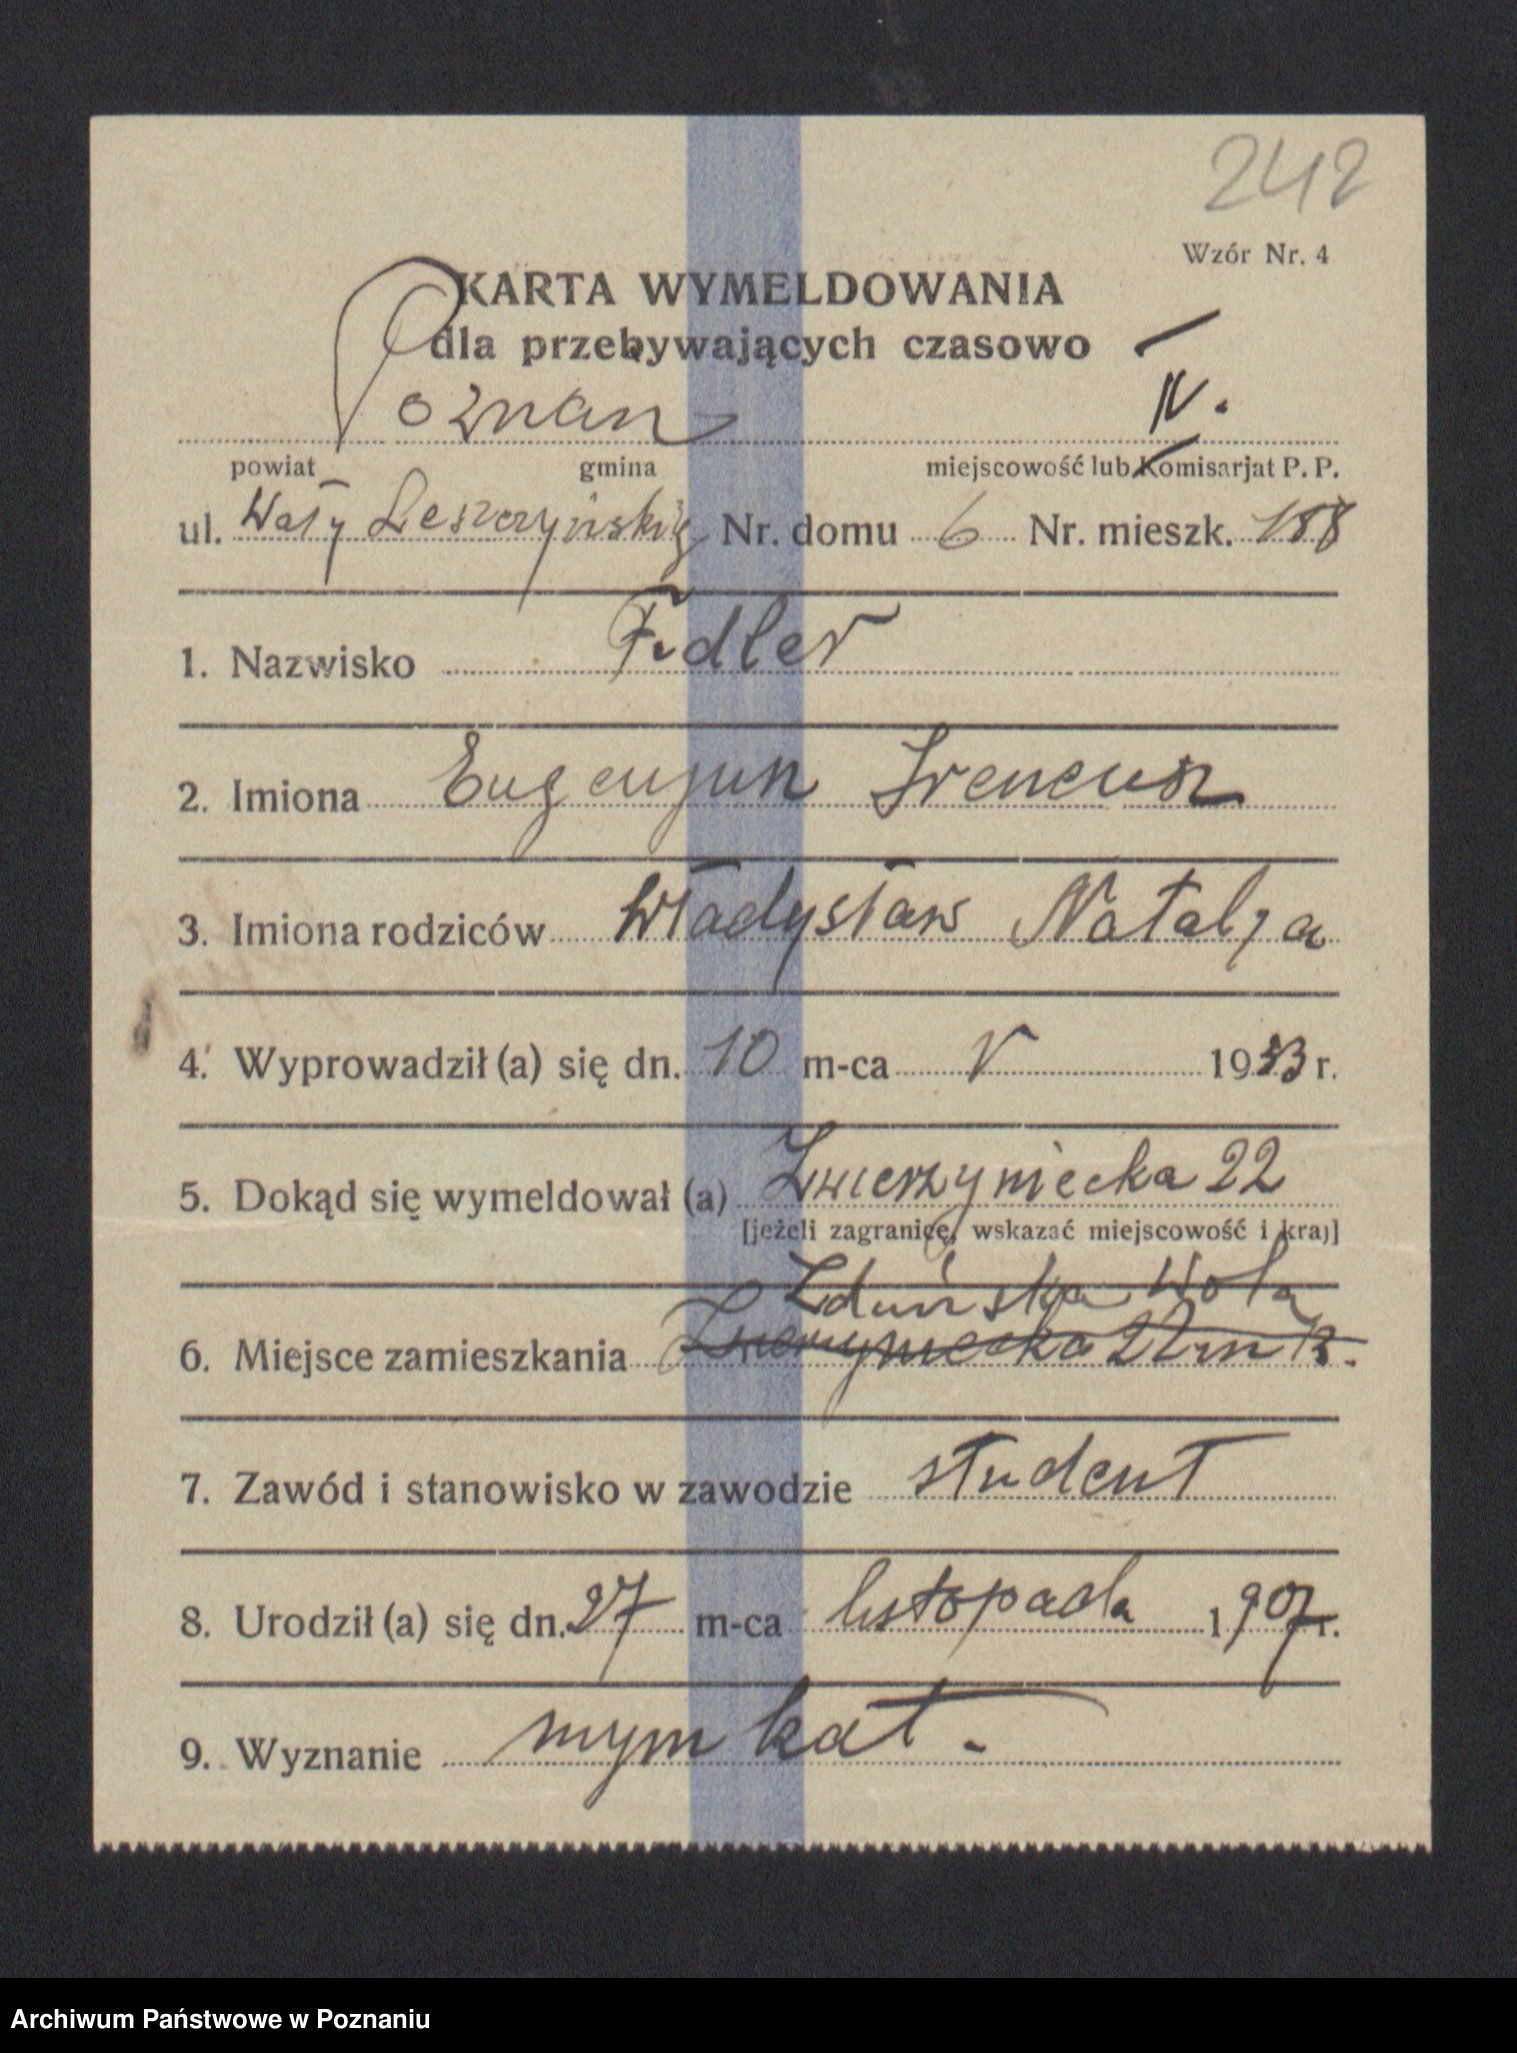 242
Wzór Nr. 4
KARTA WYMELDOWANIA
dla przebywających czasowo
Poznań IV.
powiat gmina miejscowość lub Komisarjat P. P.
ul. Wały Leszczyńskiego Nr. domu 6 Nr. mieszk. 188
1. Nazwisko Fidler
2. Imiona Eugenjusz Ireneusz
3. Imiona rodziców Władysław Natalja
4. Wyprowadził (a) się dn. 10 m-ca V 1933 r.
5. Dokąd się wymeldował (a) Zwierzyniecka 22
[jeżeli zagranicę, wskazać miejscowość i kraj]
Zduńska Wola
6. Miejsce zamieszkania Zwierzyniecka 22 m 13.
7. Zawód i stanowisko w zawodzie student
8. Urodził (a) się dn. 27 m-ca listopada 1907 r.
9. Wyznanie rzym kat.
Archiwum Państwowe w Poznaniu